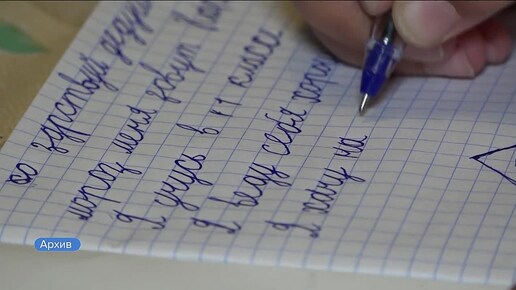 здрствуй дедуш
мороз меня зовут
Я учусь в 11 классе
Я веду себя хорош
Я хочу на
Архив